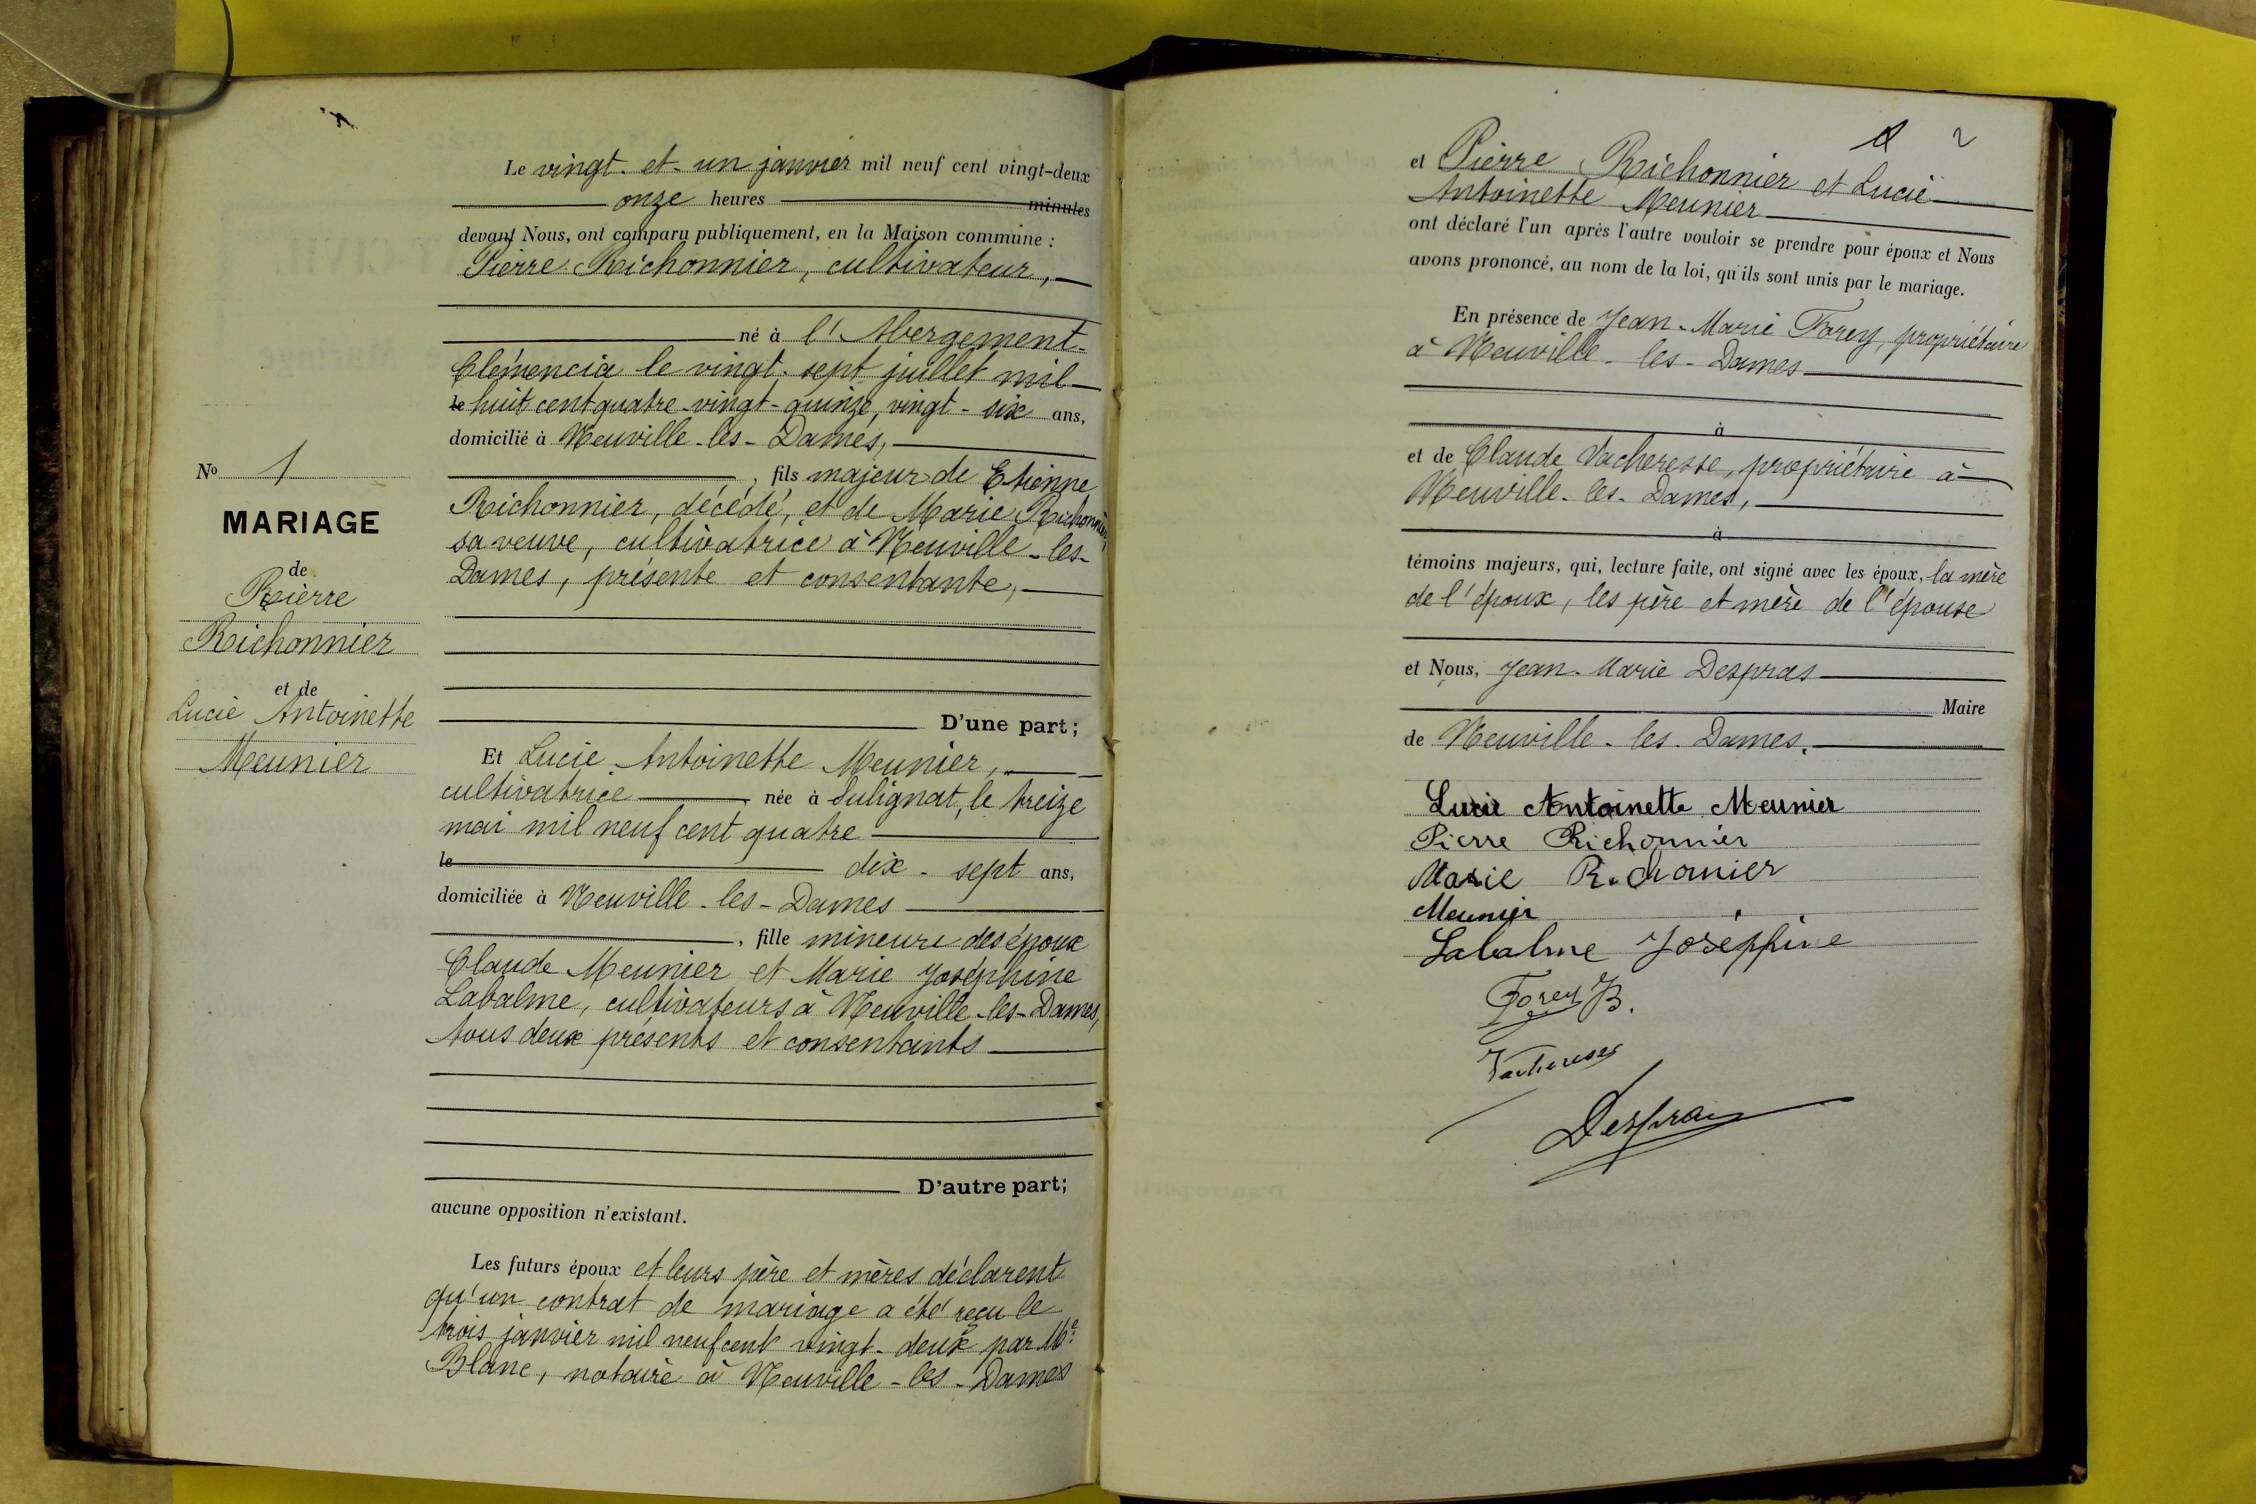 Le vingt-et-un janvier mil neuf cent vingt-deux
onze heures minutes
devant Nous, ont comparu publiquement, en la Maison commune :
Pierre Richonnier, cultivateur,
né à l'Abergement-
Clémencia le vingt-sept juillet mil
le huit cent quatre-vingt-quinze, vingt-six ans,
domicilié à Neuville-les-Dames,
, fils majeur de Etienne
Richonnier, décédé, et de Marie Richonnier,
sa veuve, cultivatrice à Neuville-les-
Dames, présente et consentante,
D'une part;
Et Lucie Antoinette Meunier,
cultivatrice, née à Sulignat, le treize
mai mil neuf cent quatre
le dix-sept ans,
domiciliée à Neuville-les-Dames
, fille mineure des époux
Claude Meunier et Marie Joséphine
Labalme, cultivateurs à Neuville-les-Dames,
tous deux présents et consentants
D'autre part;
aucune opposition n'existant.
Les futurs époux et leurs père et mères déclarent
qu'un contrat de mariage a été reçu le
trois janvier mil neuf cent vingt-deux par Me
Blanc, notaire à Neuville-les-Dames
No 1
MARIAGE
de
Pierre
Richonnier
et de
Lucie Antoinette
Meunier
2
et Pierre Richonnier et Lucie
Antoinette Meunier
ont déclaré l'un après l'autre vouloir se prendre pour époux et Nous
avons prononcé, au nom de la loi, qu'ils sont unis par le mariage.
En présence de Jean-Marie Forey, propriétaire
à Neuville-les-Dames
à
et de Claude Vacheresse, propriétaire à
Neuville-les-Dames,
à
témoins majeurs, qui, lecture faite, ont signé avec les époux, la mère
de l'époux, les père et mère de l'épouse
et Nous, Jean-Marie Despras
Maire
de Neuville-les-Dames.
Lucie Antoinette Meunier
Pierre Richonnier
Marie Richonier
Meunier
Labalme Joséphine
Forey
Vacheresse
Despras